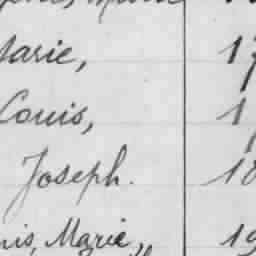 Marie, 17
Louis, 1
Joseph. 18
nis, Marie,, 19